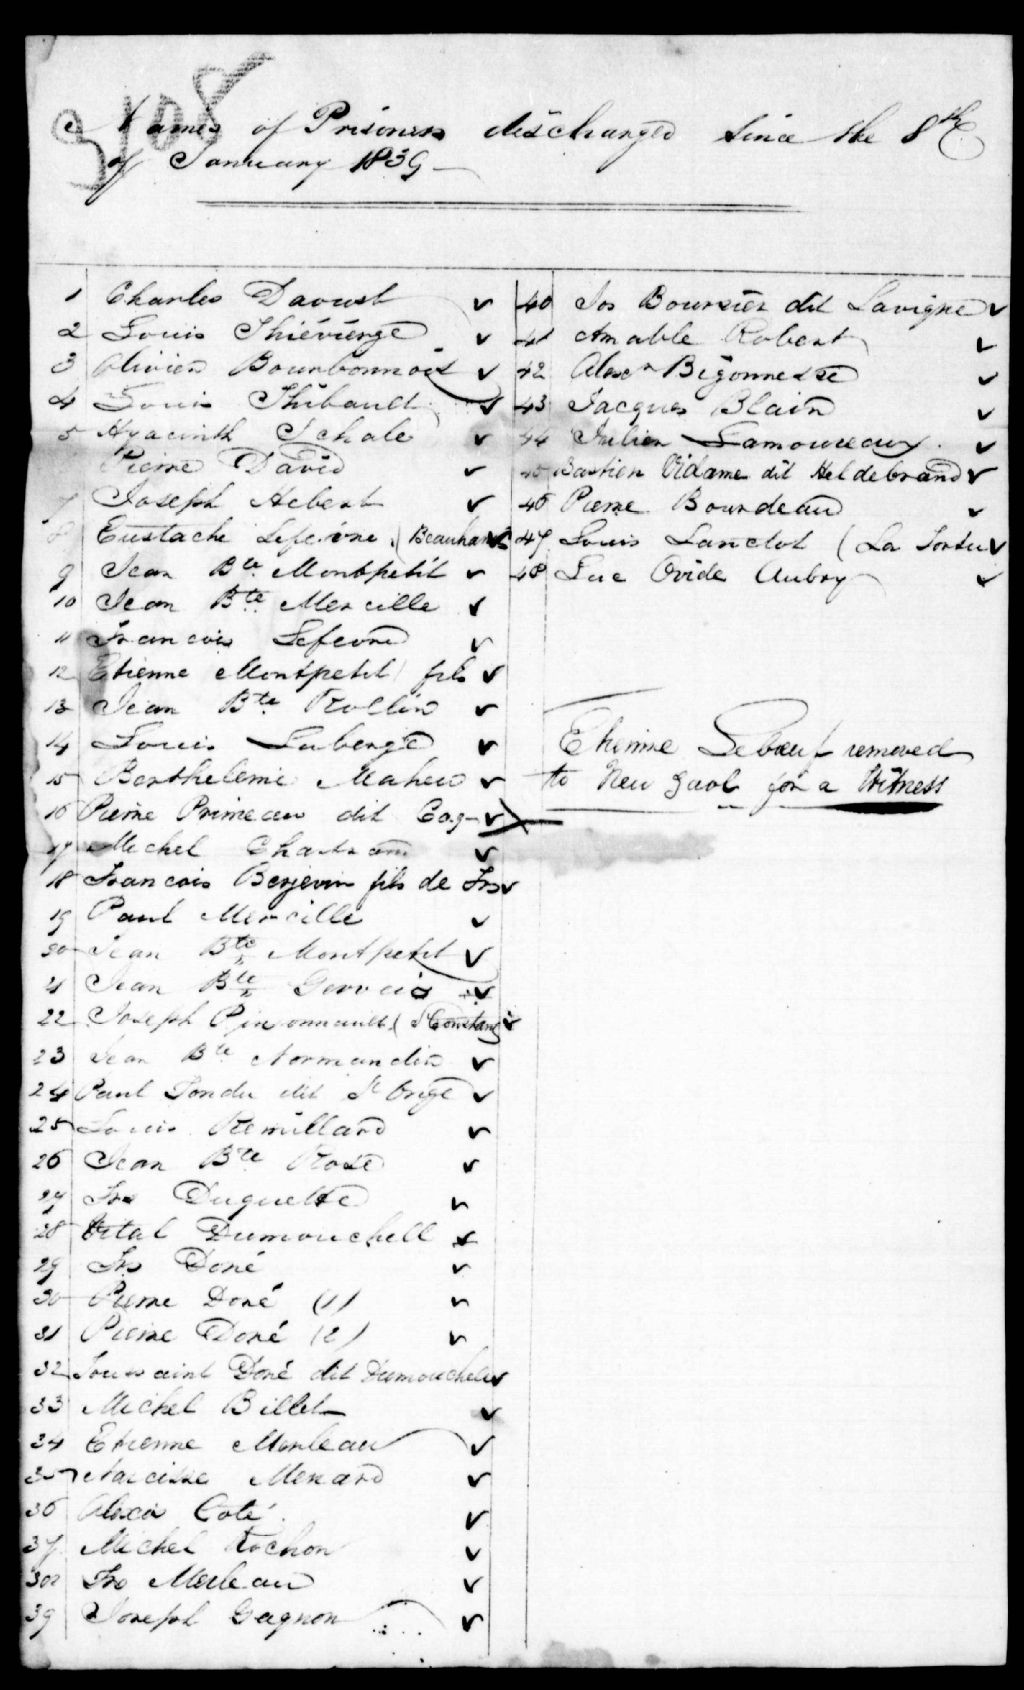 3108
Names of Prisoners discharged since the 8th
of January 1839
1 Charles Davust
2 Louis Thiévierge
3 Olivier Bourbonnois
4 Louis Thibault
5 Hyacinth
Pierre David
7 Joseph Hebert
8 Eustache Lefevre (Beauharnois
9 Jean Bte Montpetit
10 Jean Bte Mercille
11 Francois Lefevre
12 Etienne Montpetit fils
13 Jean Bte Rollin
14 Louis Laberge
15 Berthelemi Maheu
16 Pierre Primeau dit Cog
17 Michel Chartran
18 Francois Berjevin fils de Frs
19 Paul Mercille
20 Jean Bte Montpetit
21 Jean Bte Gervais
22 Joseph Pinsonnault (St Constant
23 Jean Bte Normandin
24 Paul Tondu dit St Onge
25 Louis Remillard
26 Jean Bte Rose
27 Frs Duquette
28 Vital Dumouchell
29 Frs Doré
30 Pierre Doré (1)
31 Pierre Doré (2)
32 Toussaint Doré dit Dumouchelle
33 Michel Billet
34 Etienne Merleau
35 Narcisse Menard
36 Alexis Coté
37 Michel Rochon
38 Frs Merleau
39 Joseph Gagnon
40 Jos Boursier dit Lavigne
41 Amable Robert
42 Alexr Bigonnesse
43 Jacques Blain
44 Julien Lamoureaux
45 Bastien Vidame dit Heldebrand
46 Pierre Bourdeau
47 Louis Lanctot (La Tortu
48 Luc Ovide Aubry
Etienne Lebœuf removed
to New Gaol for a Witness